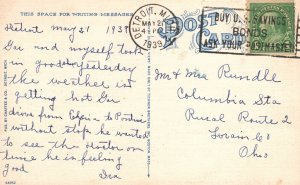 THIS SPACE FOR WRITING MESSAGES
POST
CARD
DETROIT, M
MAY 31
4 PM
1939
BUY U.S. SAVINGS
BONDS
ASK YOUR POSTMASTER
Detroit May 31 1939
and myself took
in good yesterday
the weather is
getting hot
drive from to Pontiac
without stop he wanted
to see the doctor on
time he is feeling
good
Mr & Mrs Rundle
Columbia Sta
Rural Route 2
Lorain Co
Ohio